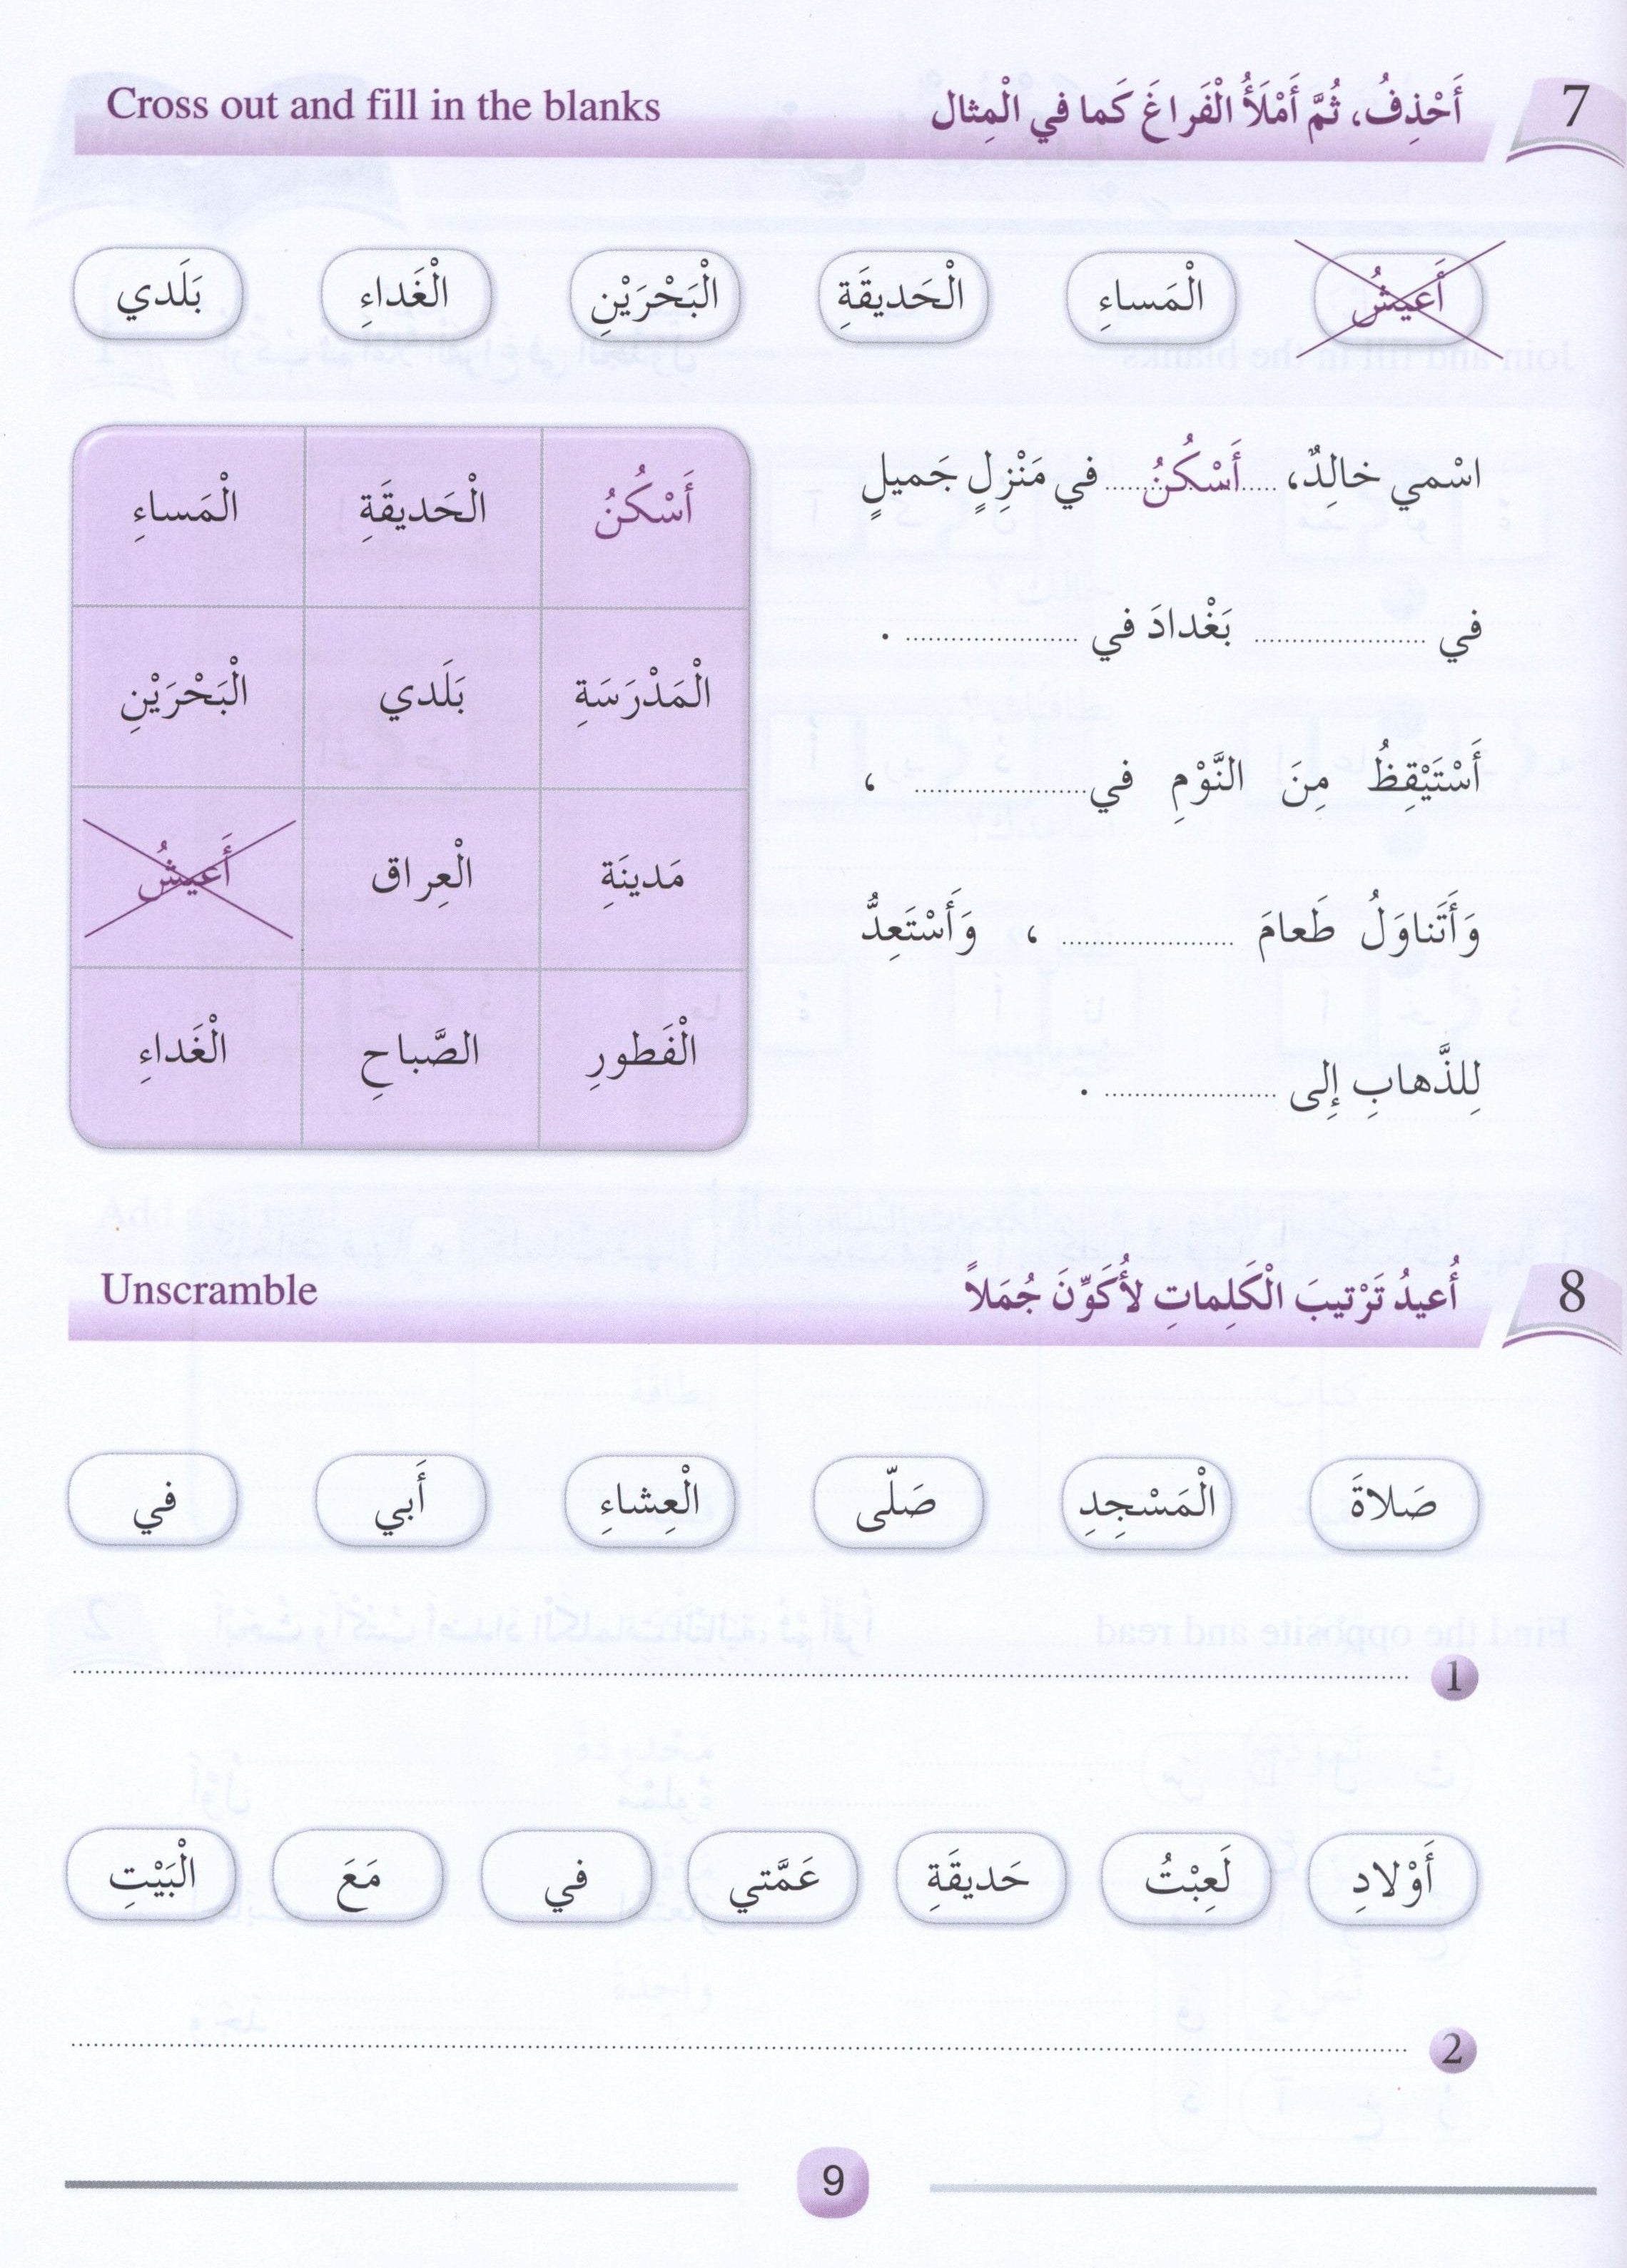 7 أَحْذِفُ، ثُمَّ أَمْلَأُ الْفَراغَ كَما في الْمِثال Cross out and fill in the blanks
أَعيشُ الْمَساءِ الْحَديقَةِ الْبَحْرَيْنِ الْغَداءِ بَلَدي
اسْمي خالِدٌ، أَسْكُنُ في مَنْزِلٍ جَميلٍ
في .................... بَغْدادَ في .................... .
أَسْتَيْقِظُ مِنَ النَّوْمِ في .................... ،
وَأَتَناوَلُ طَعامَ .................... ، وَأَسْتَعِدُّ
لِلذَّهابِ إِلى .................... .
أَسْكُنُ الْحَديقَةِ الْمَساءِ
الْمَدْرَسَةِ بَلَدي الْبَحْرَيْنِ
مَدينَةِ الْعِراق أَعيشُ
الْفَطورِ الصَّباحِ الْغَداءِ
8 أُعيدُ تَرْتيبَ الْكَلِماتِ لأُكَوِّنَ جُمَلاً Unscramble
صَلاةَ الْمَسْجِدِ صَلّى الْعِشاءِ أَبي في
1
أَوْلادِ لَعِبْتُ حَديقَةِ عَمَّتي في مَعَ الْبَيْتِ
2
9